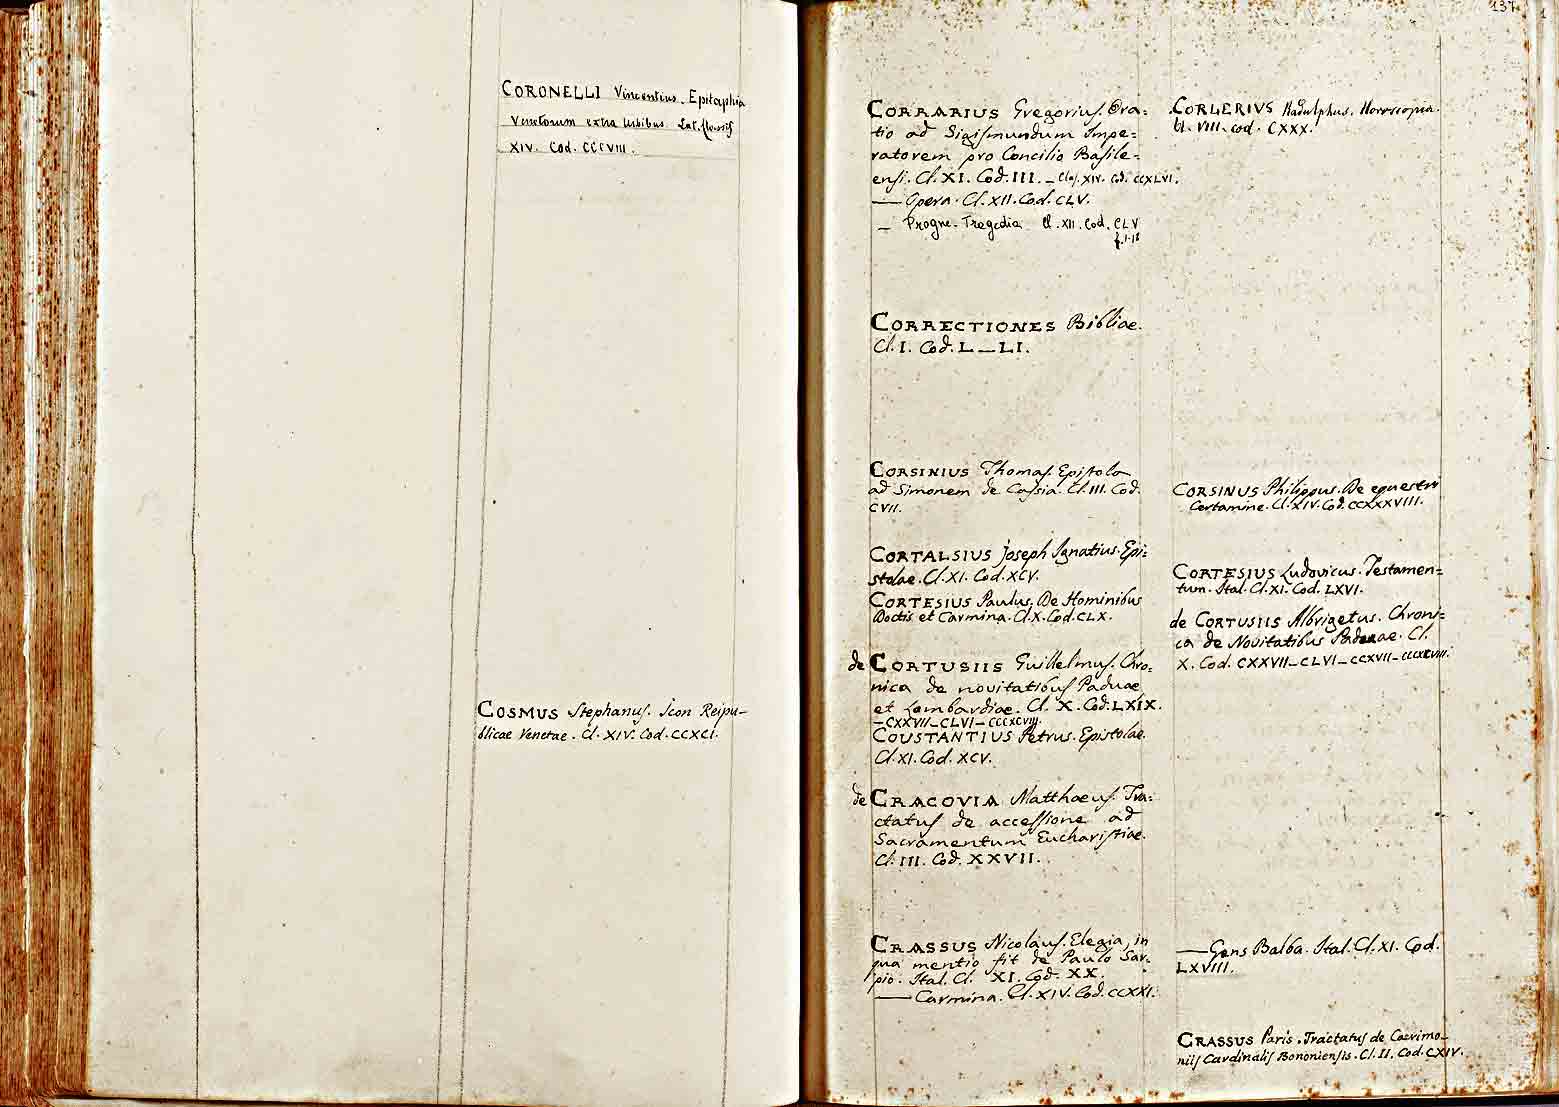 CORONELLI Vincentius. Epitaphia
Venetorum extra Urbibus. Lat. Classis
XIV. Cod. CCCVIII.
COSMUS Stephanus. Icon Reipu-
blicae Venetae. Cl. XIV. Cod. CCXCI.
137
1
CORRARIUS Gregorius. Ora:
tio ad Sigismundum Impe:
ratorem pro Concilio Basile:
ensi. Cl. XI. Cod. III. _ Clas. XIV. Cod. CCXLVI.
—— Opera. Cl. XII. Cod. CLV.
— Progne. Tragedia Cl. XII. Cod. CLV
f. 1-18
CORRECTIONES Bibliae.
Cl. I. Cod. L_LI.
CORSINIUS Thomas. Epistola
ad Simonem de Cassia. Cl. III. Cod.
CVII.
CORTALSIUS Joseph Ignatius. Epi:
stolae. Cl. XI. Cod. XCV.
CORTESIUS Paulus. De Hominibus
Doctis et Carmina. Cl. X. Cod. CLX.
de CORTUSIIS Guillelmus. Chro:
nica de novitatibus Paduae
et Lombardiae. Cl. X. Cod. LXIX.
_CXXVII_CLVI_CCCXCVIII.
COUSTANTIUS Petrus. Epistolae.
Cl. XI. Cod. XCV.
de CRACOVIA Matthaeus. Tra:
ctatus de accessione ad
Sacramentum Eucharistiae.
Cl. III. Cod. XXVII.
CRASSUS Nicolaus. Elegia, in
qua mentio fit de Paulo Sar:
pio. Ital. Cl. XI. Cod. XX.
—— Carmina. Cl. XIV. Cod. CCXXI.
CORLERIVS Radulphus. Horoscopia.
Cl. VIII. Cod. CXXX.
CORSINUS Philippus. De equestri
Certamine. Cl. XIV. Cod. CCXXXVIII.
CORTESIUS Ludovicus. Testamen=
tum. Ital. Cl. XI. Cod. LXVI.
de CORTUSIIS Albrigetus. Chroni=
ca de Novitatibus Paduae. Cl.
X. Cod. CXXVII_CLVI_CCXVII_CCCXCVIII.
—— Gens Balba. Ital. Cl. XI. Cod.
LXVIII.
CRASSUS Paris. Tractatus de Caerimo_
niis Cardinalis Bononiensis. Cl. II. Cod. CXIV.